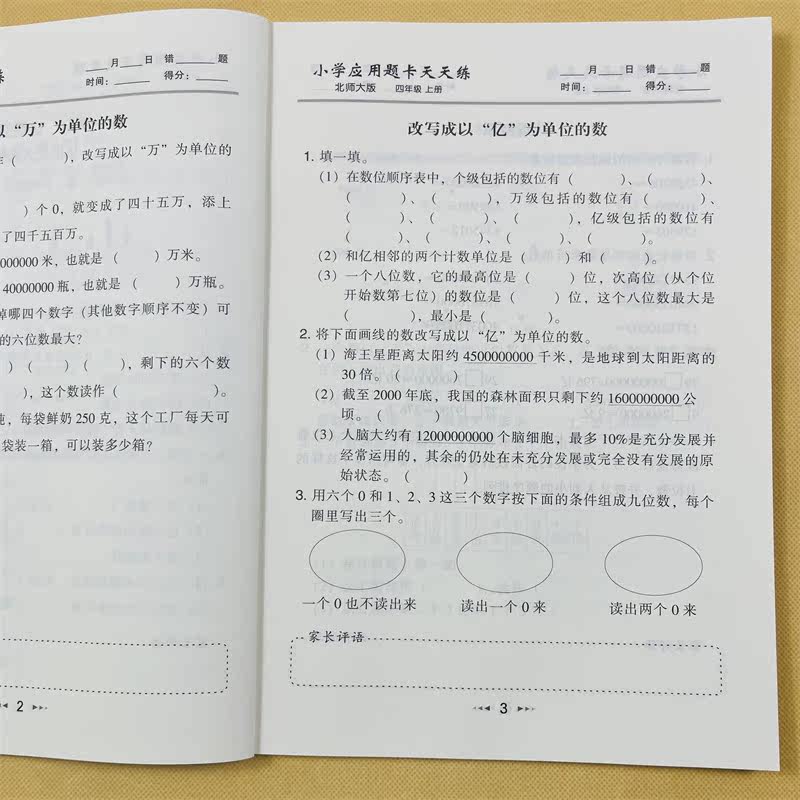 练
月 日 错 题
时间： 得分：
以“万”为单位的数
作（ ），改写成以“万”为单位的
）个0，就变成了四十五万，添上
了四千五百万。
000000米，也就是（ ）万米。
40000000瓶，也就是（ ）万瓶。
掉哪四个数字（其他数字顺序不变）可
的六位数最大？
）（ ）（ ），剩下的六个数
），这个数读作（ ）。
吨，每袋鲜奶250克，这个工厂每天可
袋装一箱，可以装多少箱？
2
小学应用题卡天天练
北师大版 四年级 上册
月 日 错 题
时间： 得分：
改写成以“亿”为单位的数
1. 填一填。
（1）在数位顺序表中，个级包括的数位有（ ）、（ ）、
（ ）、（ ），万级包括的数位有（ ）、
（ ）、（ ）、（ ），亿级包括的数位有
（ ）、（ ）、（ ）、（ ）。
（2）和亿相邻的两个计数单位是（ ）和（ ）。
（3）一个八位数，它的最高位是（ ）位，次高位（从个位
开始数第七位）的数位是（ ）位，这个八位数最大是
（ ），最小是（ ）。
2. 将下面画线的数改写成以“亿”为单位的数。
（1）海王星距离太阳约4500000000千米，是地球到太阳距离的
30倍。（ ）
（2）截至2000年底，我国的森林面积只剩下约1600000000公
顷。（ ）
（3）人脑大约有12000000000个脑细胞，最多10%是充分发展并
经常运用的，其余的仍处在未充分发展或完全没有发展的原
始状态。（ ）
3. 用六个0和1、2、3这三个数字按下面的条件组成九位数，每个
圈里写出三个。
一个0也不读出来 读出一个0来 读出两个0来
家长评语
3